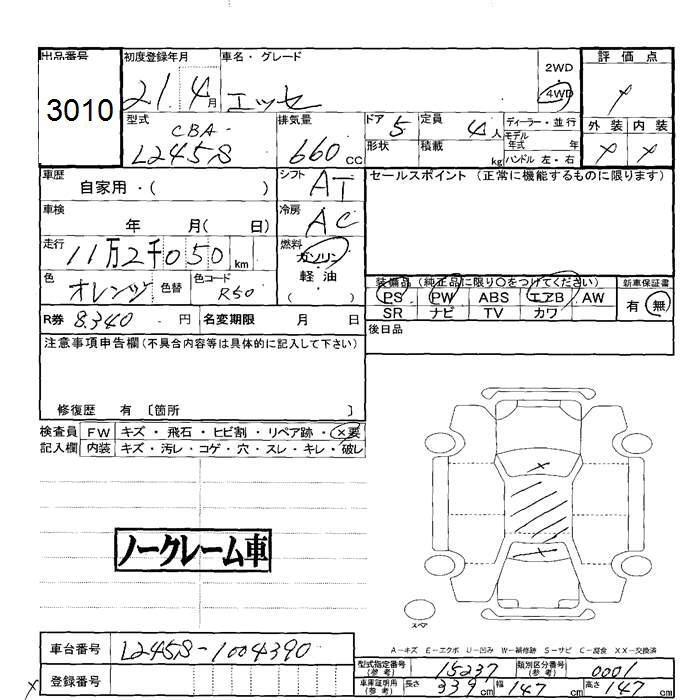 出品番号 初度登録年月 車名・グレード 2WD 評価点
3010 21 4月 エッセ 4WD ×
型式 排気量 ドア 定員 ディーラー・並行 外装 内装
CBA- 5 4人 モデル年式 年
L245S 660cc 形状 積載 kg ハンドル 左・右 × ×
車歴 シフト セールスポイント (正常に機能するものに限ります)
自家用・( ) AT
車検 冷房
年 月( 日) AC
走行 燃料
11万2千050km ガソリン
色 色コード 軽油 装備品 (純正品に限り○をつけてください) 新車保証書
オレンジ 色替 R50 ( ) PS PW ABS エアB AW 有 無
SR ナビ TV カワ
R券 8.340 円 名変期限 月 日 後日品
注意事項申告欄(不具合内容等は具体的に記入して下さい)
修復歴 有 〔箇所 〕
検査員 FW キズ・飛石・ヒビ割・リペア跡・×要
記入欄 内装 キズ・汚レ・コゲ・穴・スレ・キレ・破レ
ノークレーム車
スペア
A-キズ E-エクボ U-凹み W-補修跡 S-サビ C-腐食 XX-交換済
車台番号 L245S-1004390
型式指定番号(参考) 15237 類別区分番号(参考) 0001
登録番号 車庫証明用(参考) 長さ 339cm 幅 147cm 高さ 147cm